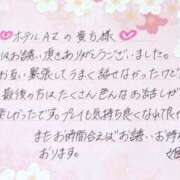 ホテルAZの貴方様
はお誘い頂きありがとうございました。
お互い緊張してうまく話せなかったけど
最後の方はたくさん色んなお話しが
楽しかったです。プレイも気持ち良くなれて
またお時間会えばお誘いお待
おります。